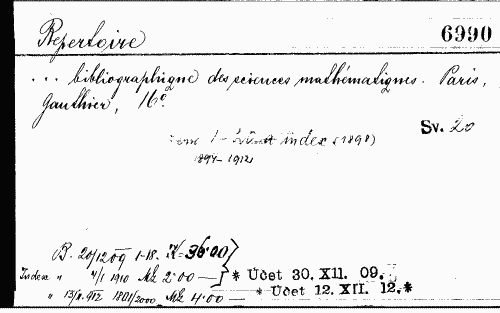 Repertoire 6990
... bibliographique des sciences mathématiques. Paris,
Gauthier, 16°.
Sv. 20
index (1898)
1894-1912
B. 20/12 09 1-18. K= 36.00
Index " 4/1 1910 Mk 2.00 — * Účet 30. XII. 09.
" 13/2. 912 1801/2000 Mk 4.00 — * Účet 12. XII. 12.*